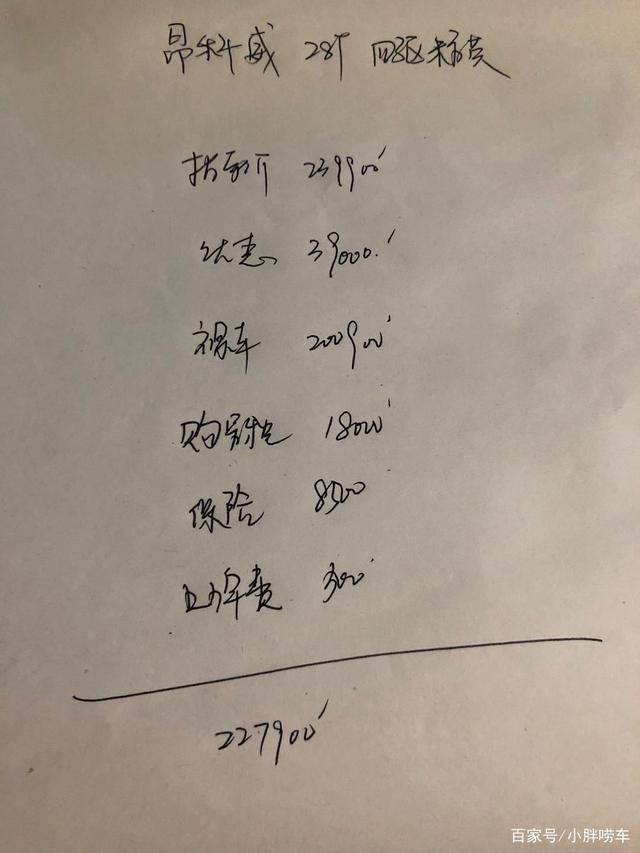 昂科威 28T 四驱精英
指导价 239900
优惠 39000
裸车 200900
购置税 18000
保险 8500
上牌费 500
227900
百家号/小胖唠车